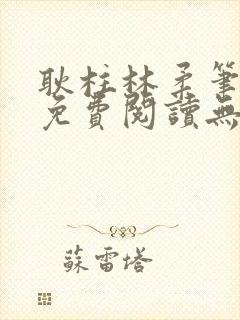 耿柱林柔筆
免費閱讀無
蘇雷塔